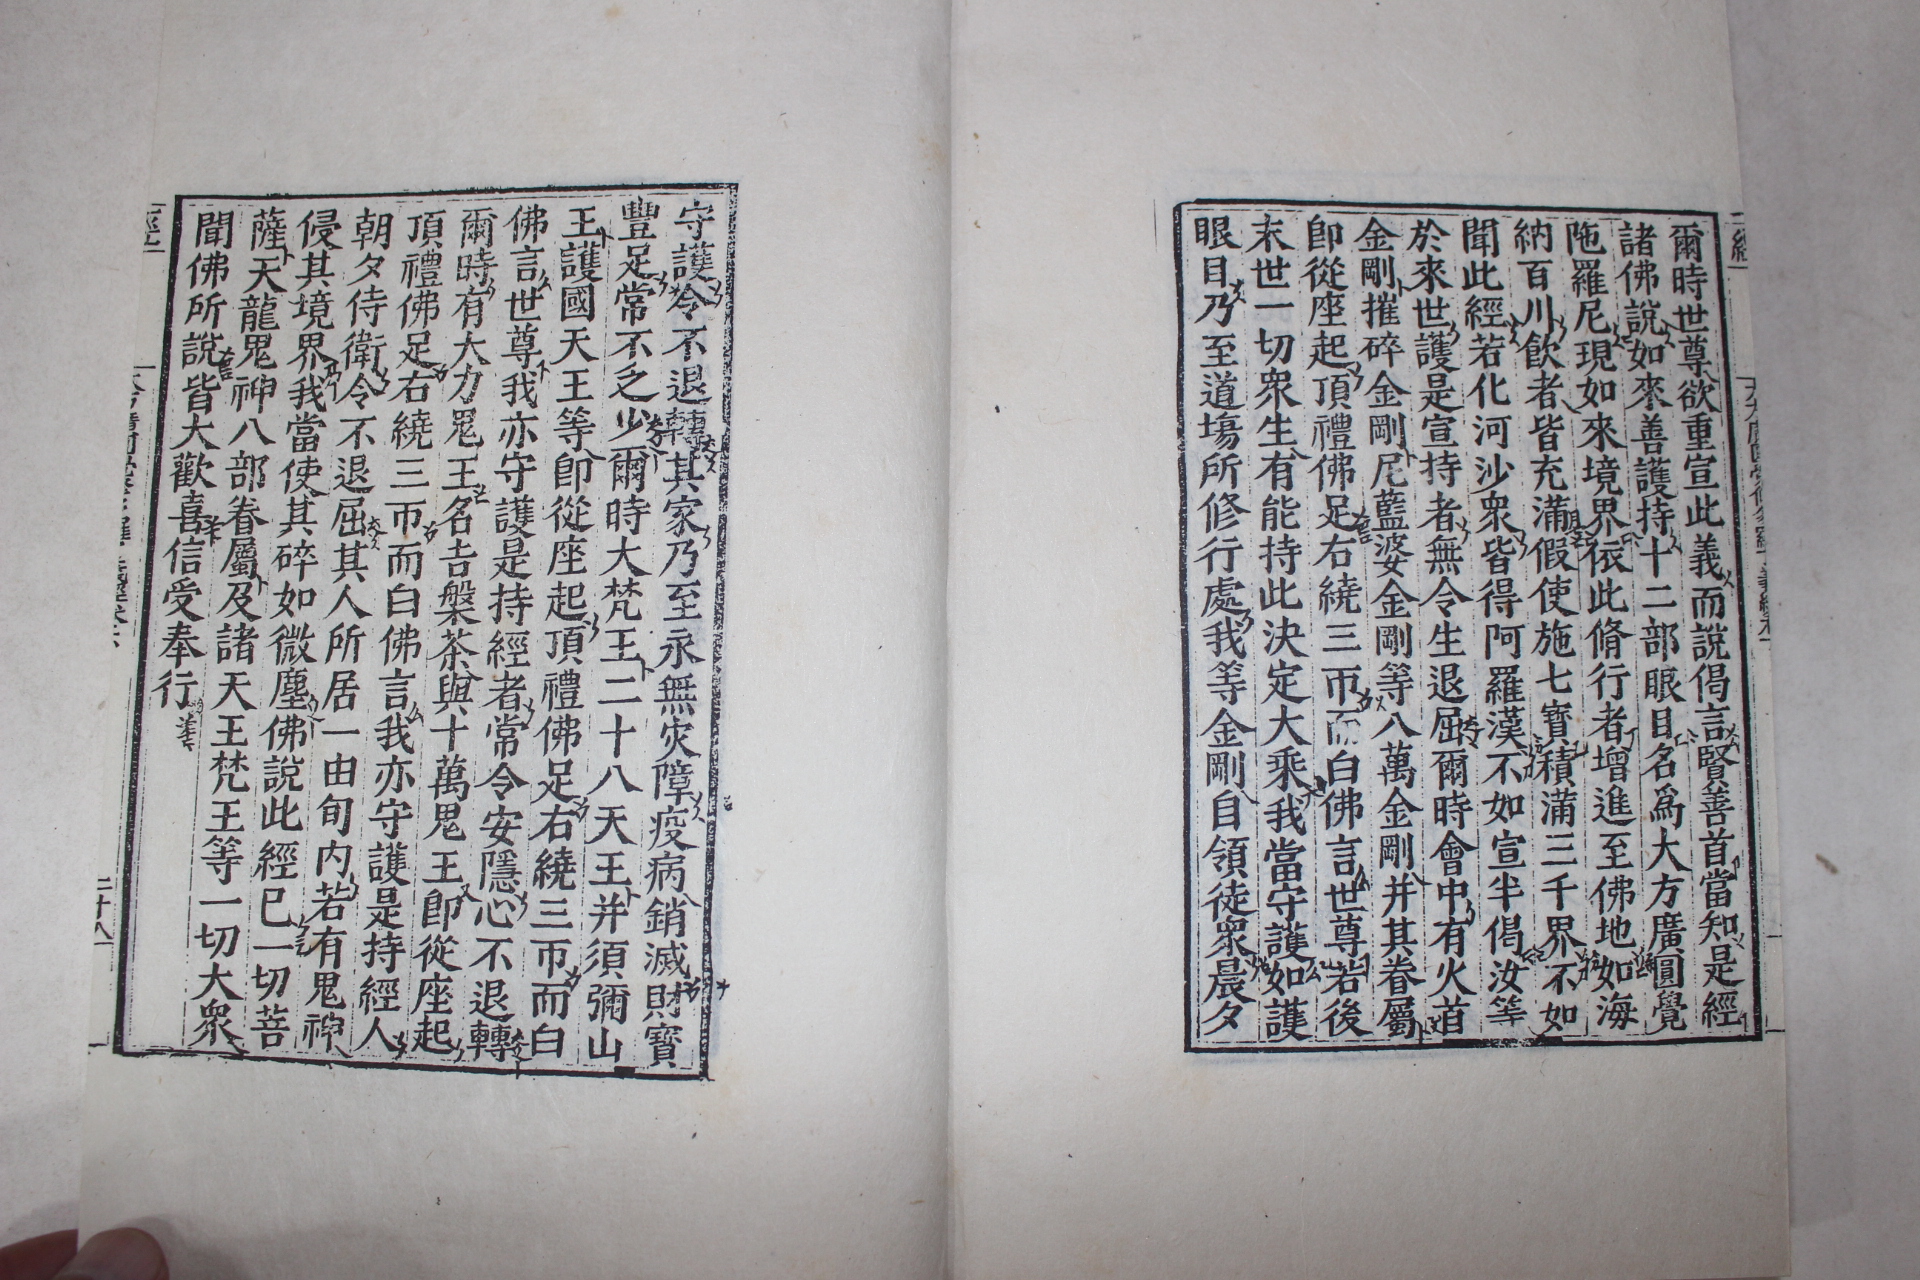 爾時世尊欲重宣此義而說偈言賢善首當知是經
諸佛說如來善護持十二部眼目名爲大方廣圓覺
陁羅尼現如來境界依此脩行者增進至佛地如海
納百川飮者皆充滿假使施七寶積滿三千界不如
聞此經若化河沙衆皆得阿羅漢不如宣半偈汝等
於來世護是宣持者無令生退屈爾時會中有火首
金剛摧碎金剛尼藍婆金剛等八萬金剛并其眷屬
卽從座起頂禮佛足右繞三帀而白佛言世尊若後
末世一切衆生有能持此決定大乘我當守護如護
眼目乃至道場所修行處我等金剛自領徒衆晨夕
守護令不退轉其家乃至永無灾障疫病銷滅財寶
豐足常不乏少爾時大梵王二十八天王并須彌山
王護國天王等卽從座起頂禮佛足右繞三帀而白
佛言世尊我亦守護是持經者常令安隱心不退轉
爾時有大力鬼王名吉槃茶與十萬鬼王卽從座起
頂禮佛足右繞三帀而白佛言我亦守護是持經人
朝夕侍衛令不退屈其人所居一由旬內若有鬼神
侵其境界我當使其碎如微塵佛說此經已一切菩
薩天龍鬼神八部眷屬及諸天王梵王等一切大衆
聞佛所說皆大歡喜信受奉行
二十八